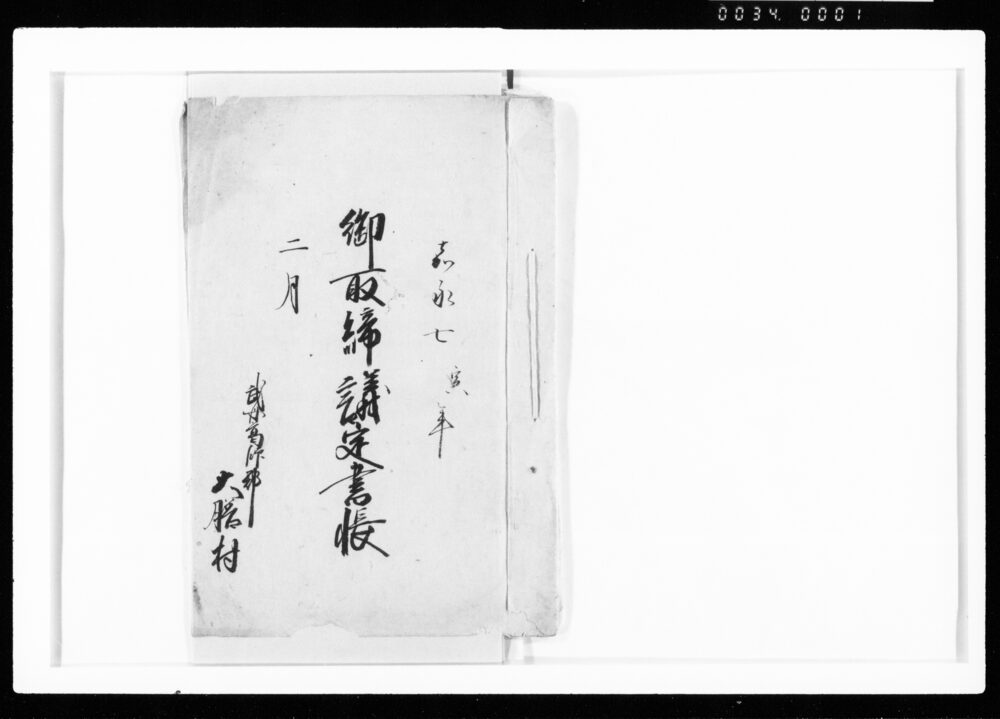 0034 0001
嘉永七寅年
御取締議定書帳
二月
武州高麗郡
大谷村